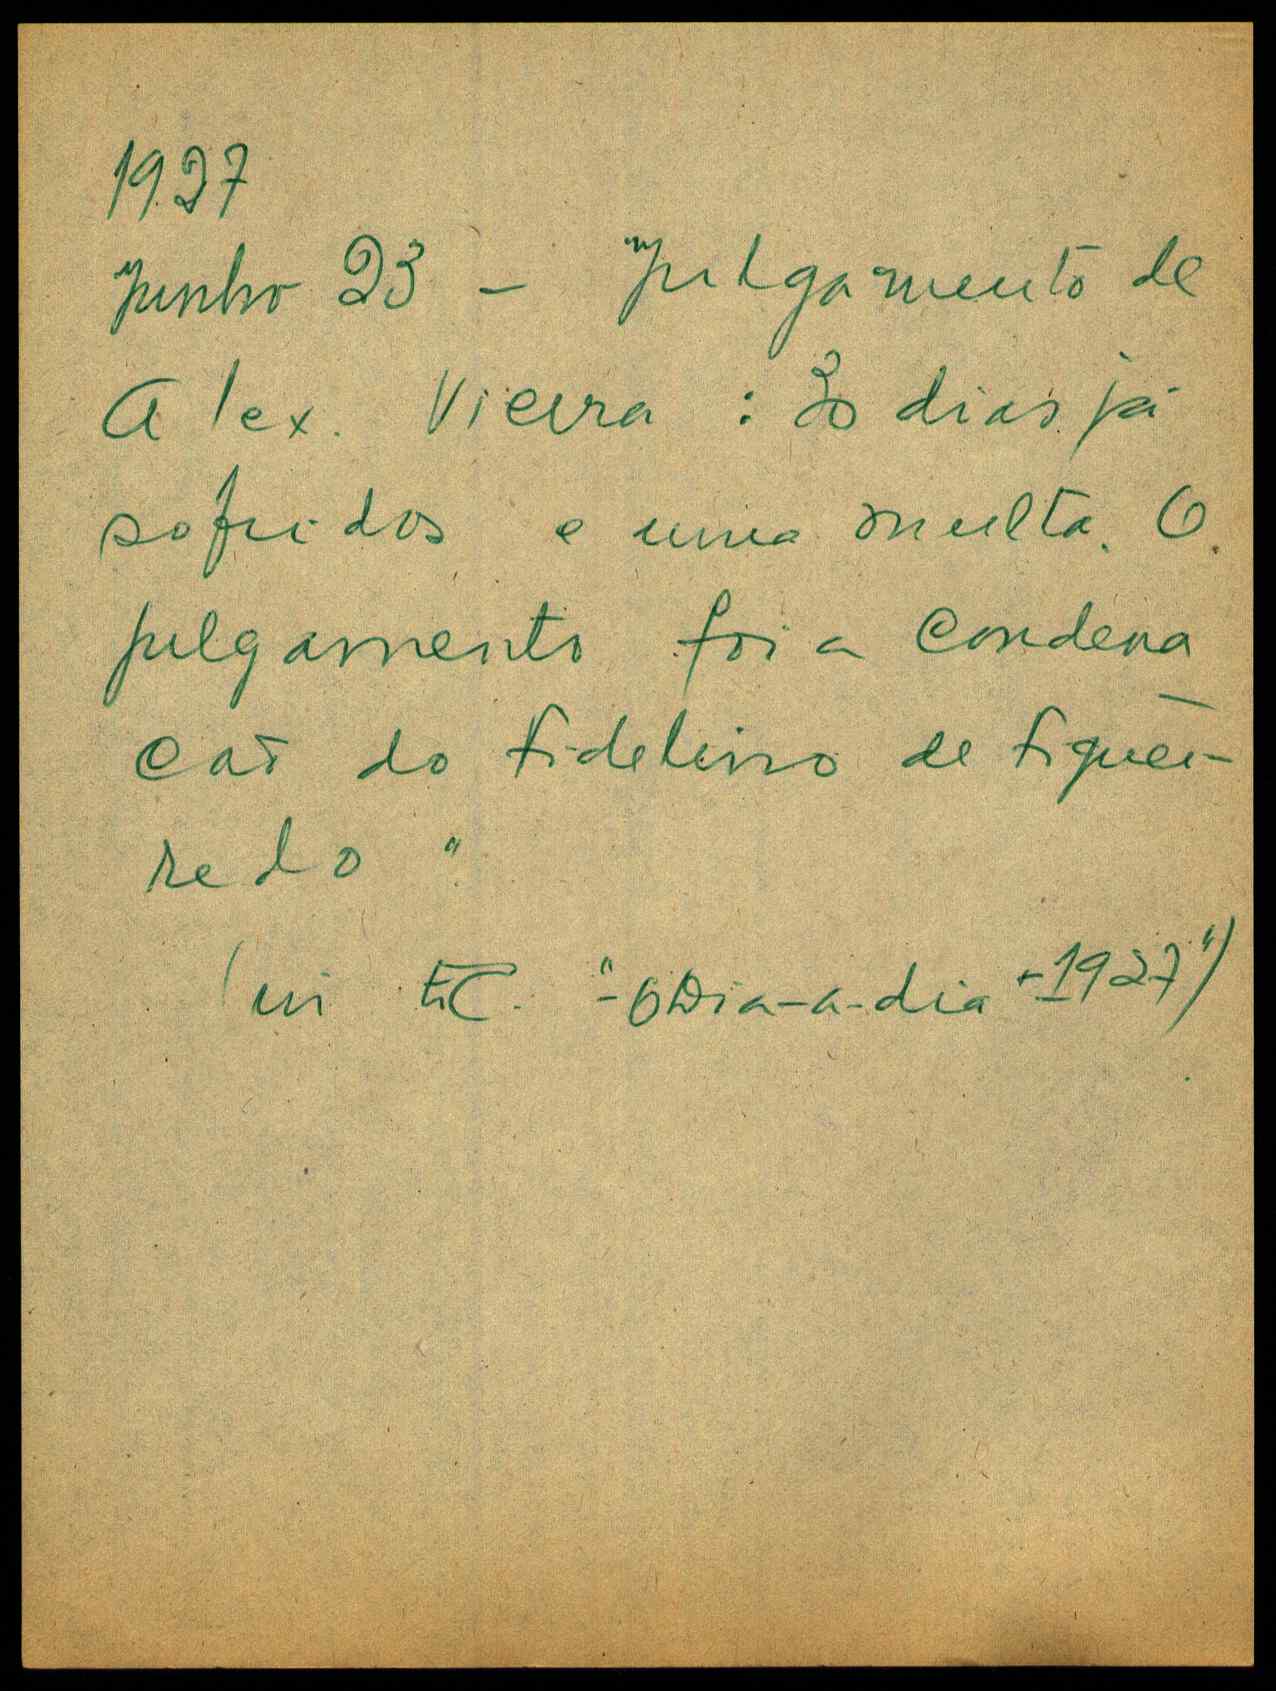 1927
Junho 23 - "Julgamento de
Alex. Vieira : 30 dias já
sofridos e uma multa. O
julgamento foi a condena
cão do Fidelino de Figuei-
redo".
(in F.C. "- O Dia-a-dia - 1927")